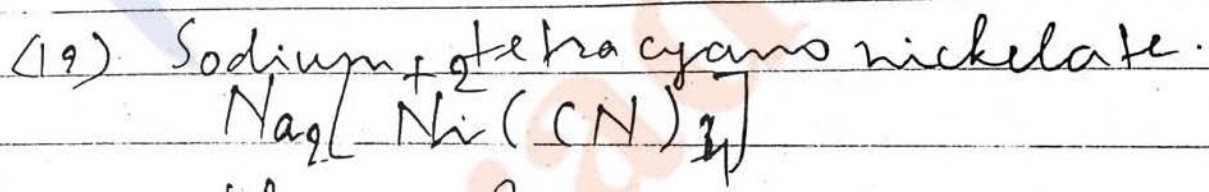 (19) Sodium tetracyano nickelate.
+2
Na2[Ni(CN)4]